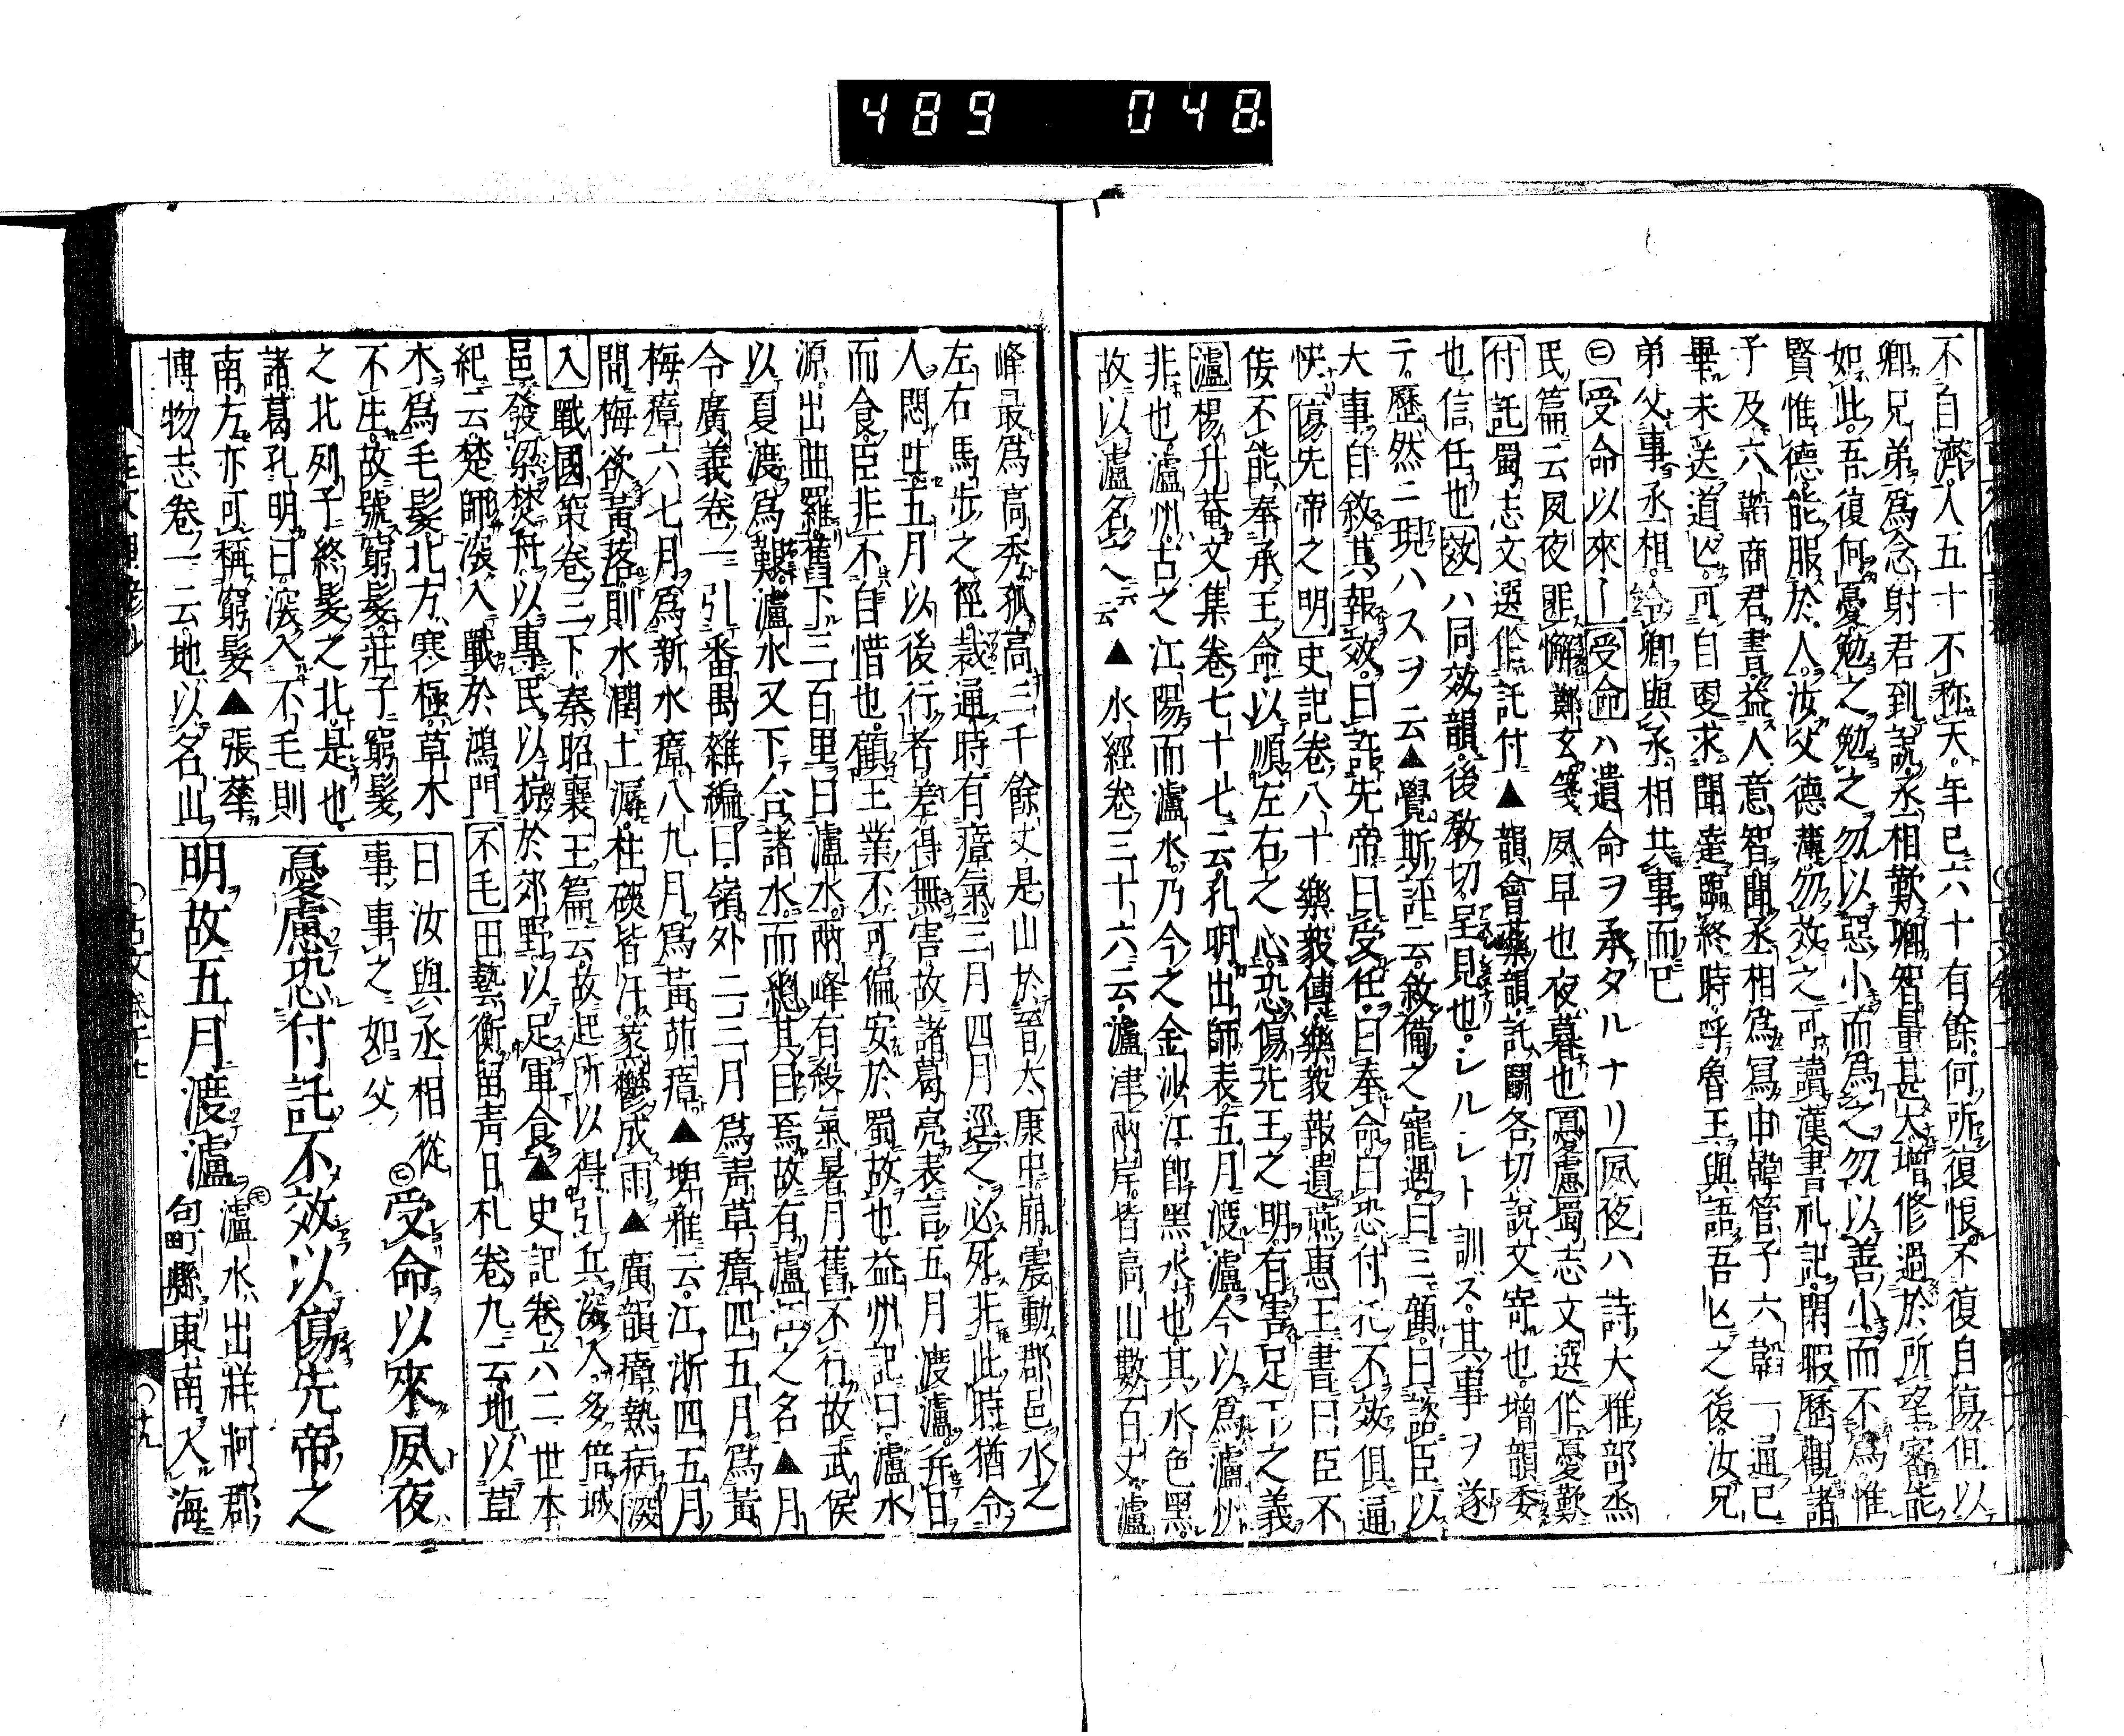 489 048
不自濟人五十不称夭年已六十有餘何所復恨不復自傷但以
卿兄弟爲念射君到說丞相歎卿智量甚大增修過於所望審能
如此吾復何憂勉之勉之勿以惡小而爲之勿以善小而不爲惟
賢惟德能服於人汝父德薄勿效之可讀漢書礼記閑暇歷觀諸
子及六韜商君書益人意智聞丞相爲寫申韓管子六韜一通已
畢未送道亡可自更求聞達臨終時呼魯王與語吾亡之後汝兄
弟父事丞相給卿與丞相共事而已
㊁受命以來〡受命ハ遺命ヲ承タルナリ夙夜ハ詩大雅部烝
民篇云夙夜匪懈鄭玄箋夙早也夜暮也憂慮蜀志文選作憂歎
付託蜀志文選作託付▲韻會藥韻託闥各切說文寄也增韻委
也信任也效ハ同效韻後敎切呈見也シルレト訓ズ其事ヲ遂
テ歷然ニ現ハスヲ云▲覺斯評云敘備之寵遇曰三顧曰諮臣以
大事自敘其報效曰許先帝曰受任曰奉命曰恐付托不效俱逼
快傷先帝之明史記卷八十樂毅傳樂毅報遺燕惠王書曰臣不
佞不能奉承王命以順左右之心恐傷先王之明有害足下之義
瀘楊升菴文集卷七十七云孔明出師表五月渡瀘今以爲瀘州
非也瀘州古之江陽而瀘水乃今之金沙江卽黑水也其水色黑
故以瀘名之云云▲水經卷三十六云瀘津兩岸皆高山數百丈瀘
峰最爲高秀孤高三千餘丈是山於晉太康中崩震動郡邑水之
左右馬步之徑裁通時有瘴氣三月四月逕之必死非此時猶令
人悶吐五月以後行者差得無害故諸葛亮表言五月渡瀘幷日
而食臣非不自惜也顧王業不可偏安於蜀故也益州記曰瀘水
源出曲羅舊下三百里曰瀘水兩峰有殺氣暑月舊不行故武侯
以夏渡爲艱瀘水又下合諸水而總其目焉故有瀘江之名▲月
令廣義卷一引番禺雜編曰嶺外二三月爲靑草瘴四五月爲黃
梅瘴六七月爲新水瘴八九月爲黃茆瘴▲埤雅云江浙四五月
間梅欲黃落則水潤土溽柱磉皆汗蒸鬱成雨▲廣韻瘴熱病深
入戰國策卷三下秦昭襄王篇云故起所以得引兵深入多倍城
邑發梁焚舟以專民以掠於郊野以足軍食▲史記卷六二世本
紀云楚師深入戰於鴻門不毛田藝衡留靑日札卷九云地以草
木爲毛髮北方寒極草木
不庄故號窮髮莊子窮髮
之北列子終髮之北是也
諸葛孔明曰深入不毛則
南方亦可稱窮髮▲張華
博物志卷一云地以名山
曰汝與丞相從
事事之如父
㊁受命以來夙夜
憂慮恐付託不效以傷先帝之
明故五月渡瀘
㋲瀘水出牂牁郡
句町縣東南入海